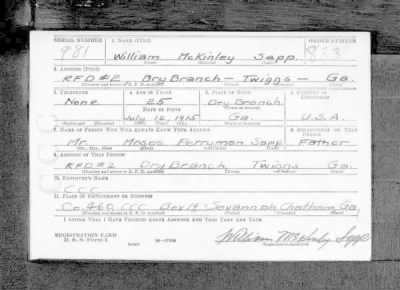 SERIAL NUMBER 1. NAME (Print) ORDER NUMBER
981 William McKinley Sapp 833
(First) (Middle) (Last)
2. ADDRESS (Print)
RFD#2 Dry Branch – Twiggs – Ga.
(Number and street or R. F. D. number) (Town) (County) (State)
3. TELEPHONE 4. AGE IN YEARS 5. PLACE OF BIRTH 6. COUNTRY OF CITIZENSHIP
None 25 Dry Branch
DATE OF BIRTH (Town or county)
July 12, 1915 Ga. U.S.A.
(Exchange) (Number) (Mo.) (Day) (Yr.) (State or country)
7. NAME OF PERSON WHO WILL ALWAYS KNOW YOUR ADDRESS 8. RELATIONSHIP OF THAT PERSON
Mr. Moses Perryman Sapp Father
(Mr., Mrs., Miss) (First) (Middle) (Last)
9. ADDRESS OF THAT PERSON
RFD#2 Dry Branch, Twiggs Ga.
(Number and street or R. F. D. number) (Town) (County) (State)
10. EMPLOYER'S NAME
CCC
11. PLACE OF EMPLOYMENT OR BUSINESS
Co. 460 CCC Box 19 Savannah Chatham, Ga.
(Number and street or R. F. D. number) (Town) (County) (State)
I AFFIRM THAT I HAVE VERIFIED ABOVE ANSWERS AND THAT THEY ARE TRUE.
REGISTRATION CARD
D. S. S. Form 1 16—17105 William McKinley Sapp
(Registrant's signature)